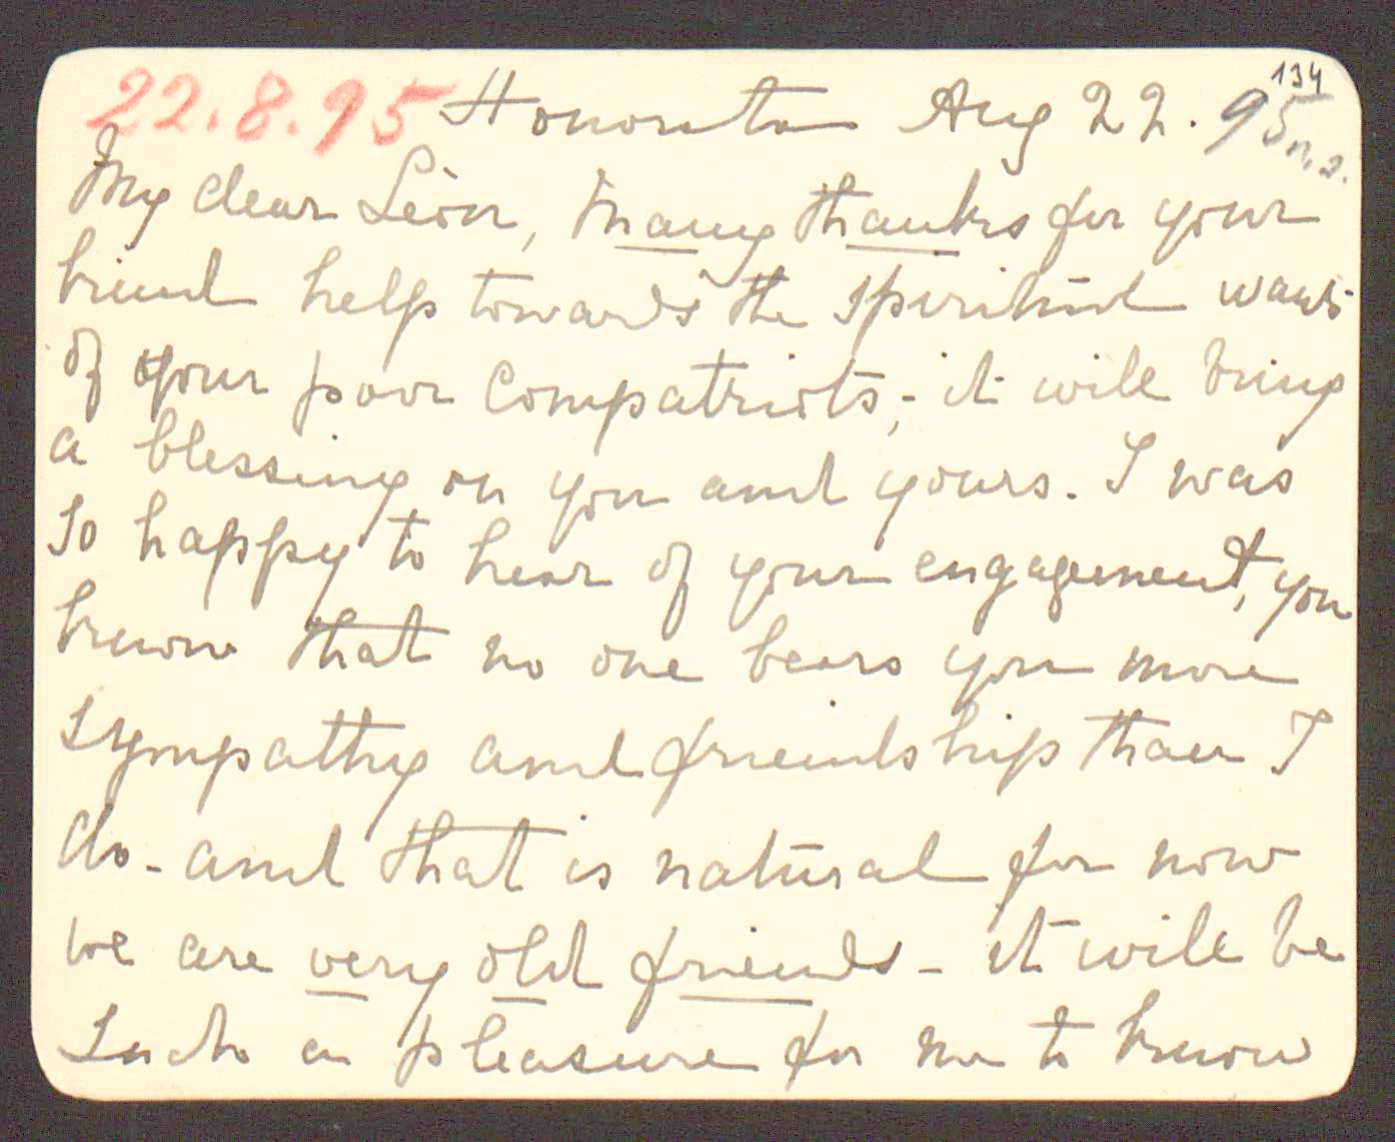 134
22.8.95 Honorata Aug 22. 95 n.s.
My dear Léon, Many thanks for your
kind help towards the spiritual wants
of your poor compatriots,- it will bring
a blessing on you and yours. I was
so happy to hear of your engagement, you
know that no one bears you more
sympathy and friendship than I
do - and that is natural for now
we are very old friends - it will be
such a pleasure for me to know